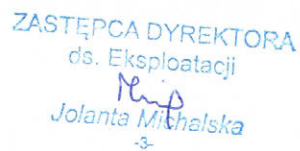 ZASTĘPCA DYREKTORA
ds. Eksploatacji
Jolanta Michalska
-3-